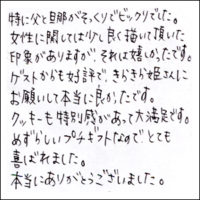 特に父と旦那がそっくりでビックリでした。
女性に関しては少し良く描いて頂いた
印象がありますが、それは嬉しかったです。
ゲストからも好評で、きらきら姫さんに
お願いして本当に良かったです。
クッキーも特別感があって大満足です。
めずらしいプチギフトなのでとても
喜ばれました。
本当にありがとうございました。